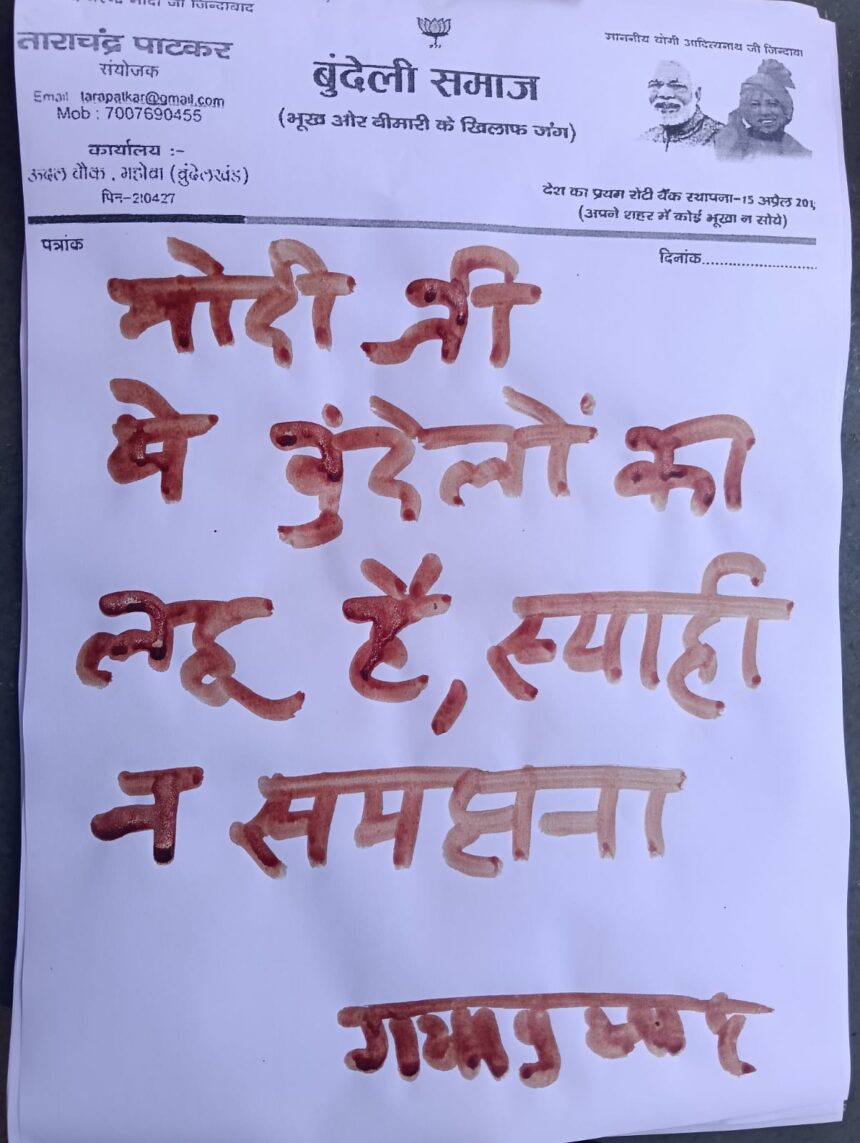 जी जिन्दाबाद
ताराचंद्र पाटकर
संयोजक
Email tarapatkar@gmail.com
Mob : 7007690455
कार्यालय :-
ऊदल चौक, महोवा (बुंदेलखंड)
पिन-210427
बुंदेली समाज
(भूख और बीमारी के खिलाफ जंग)
माननीय योगी आदित्यनाथ जी जिन्दाबा
देश का प्रथम रोटी बैंक स्थापना-15 अप्रैल 201
(अपने शहर में कोई भूखा न सोये)
पत्रांक
दिनांक............................
मोदी जी
ये बुंदेलों का
लहू है, स्याही
न समझना